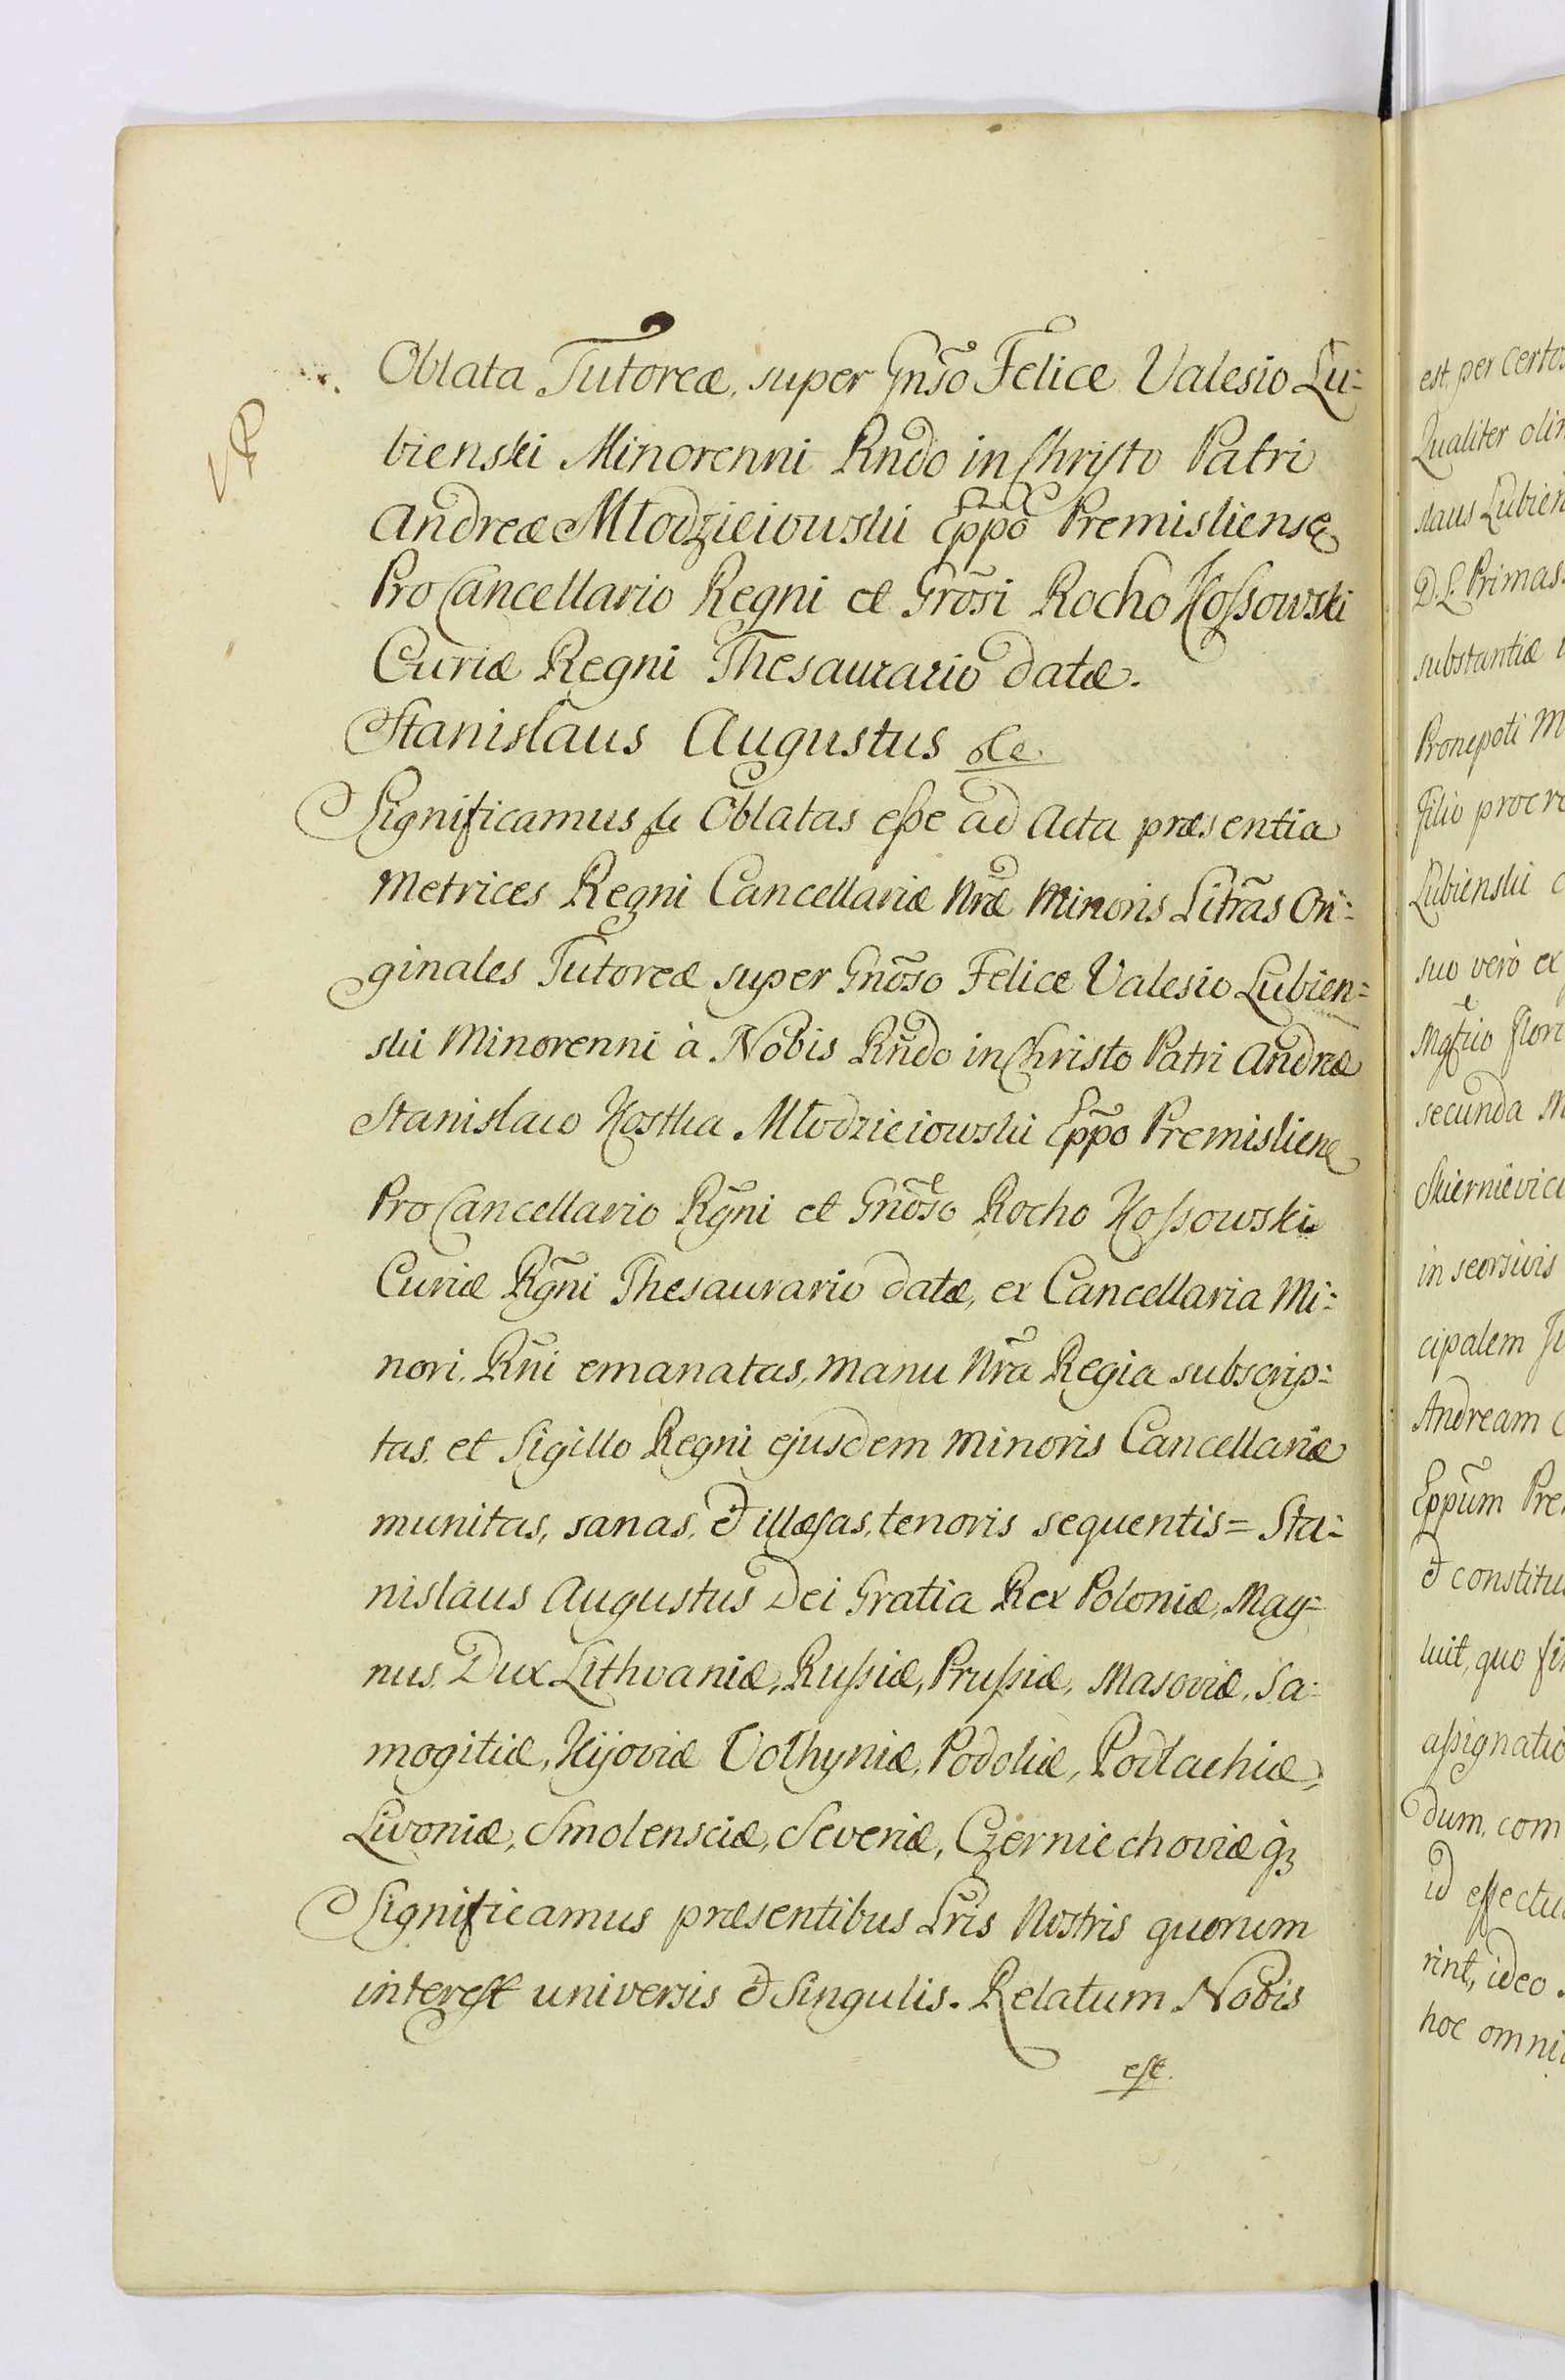 VR
Oblata Tutoreæ, super Gnõso Felice Valesio Lu:
bienski Minorenni Rñdo in Christo Patri
Andreæ Młodzieiowski Eppõ Premisliense
Pro Cancellario Regni et Grõsi Rocho Kossowski
Curiæ Regni Thesaurario datæ.
Stanislaus Augustus &c.
Significamus &c Oblatas esse ad Acta præsentia
Metrices Regni Cancellariæ Nræ Minoris Litrãs Ori:
ginales Tutoreæ super Gnõso Felice Valesio Lubien=
ski Minorenni à Nobis Rñdo in Christo Patri Andreæ
Stanislao Kostka Młodzieiowski Eppõ Premisliene
Pro Cancellario Rg̃ni et Gnõso Rocho Kossowski
Curiæ Rg̃ni Thesaurario datæ, ex Cancellaria Mi:
nori Rñi emanatas, manu Nrã Regia subscrip:
tas et Sigillo Regni ejusdem minoris Cancellariæ
munitas, sanas, & illæsas, tenoris sequentis = Sta:
nislaus Augustus Dei Gratia Rex Poloniæ, Mag=
nus Dux Lithvaniæ, Russiæ, Prussiæ, Masoviæ, Sa:
mogitiæ, Kijoviæ Volhyniæ, Podoliæ, Podlachiæ,
Livoniæ, Smolensciæ, Severiæ, Czerniechoviæ q̃3
Significamus præsentibus Lr̃is Nostris quorum
interest universis & Singulis. Relatum Nobis
est.
est per certos
Qualiter olim
slaus Lubien
D. L. Primas
substantiæ
Pronepoti M
filio procre
Lubienski
suo verò ex
flori
secunda m
Skiernievici
in seorsivis
cipalem
Andream C
Eppũm Pre
& constitu
luit, quo fi
assignatio
dum, com
id effectu
rint, ideo
hoc omni